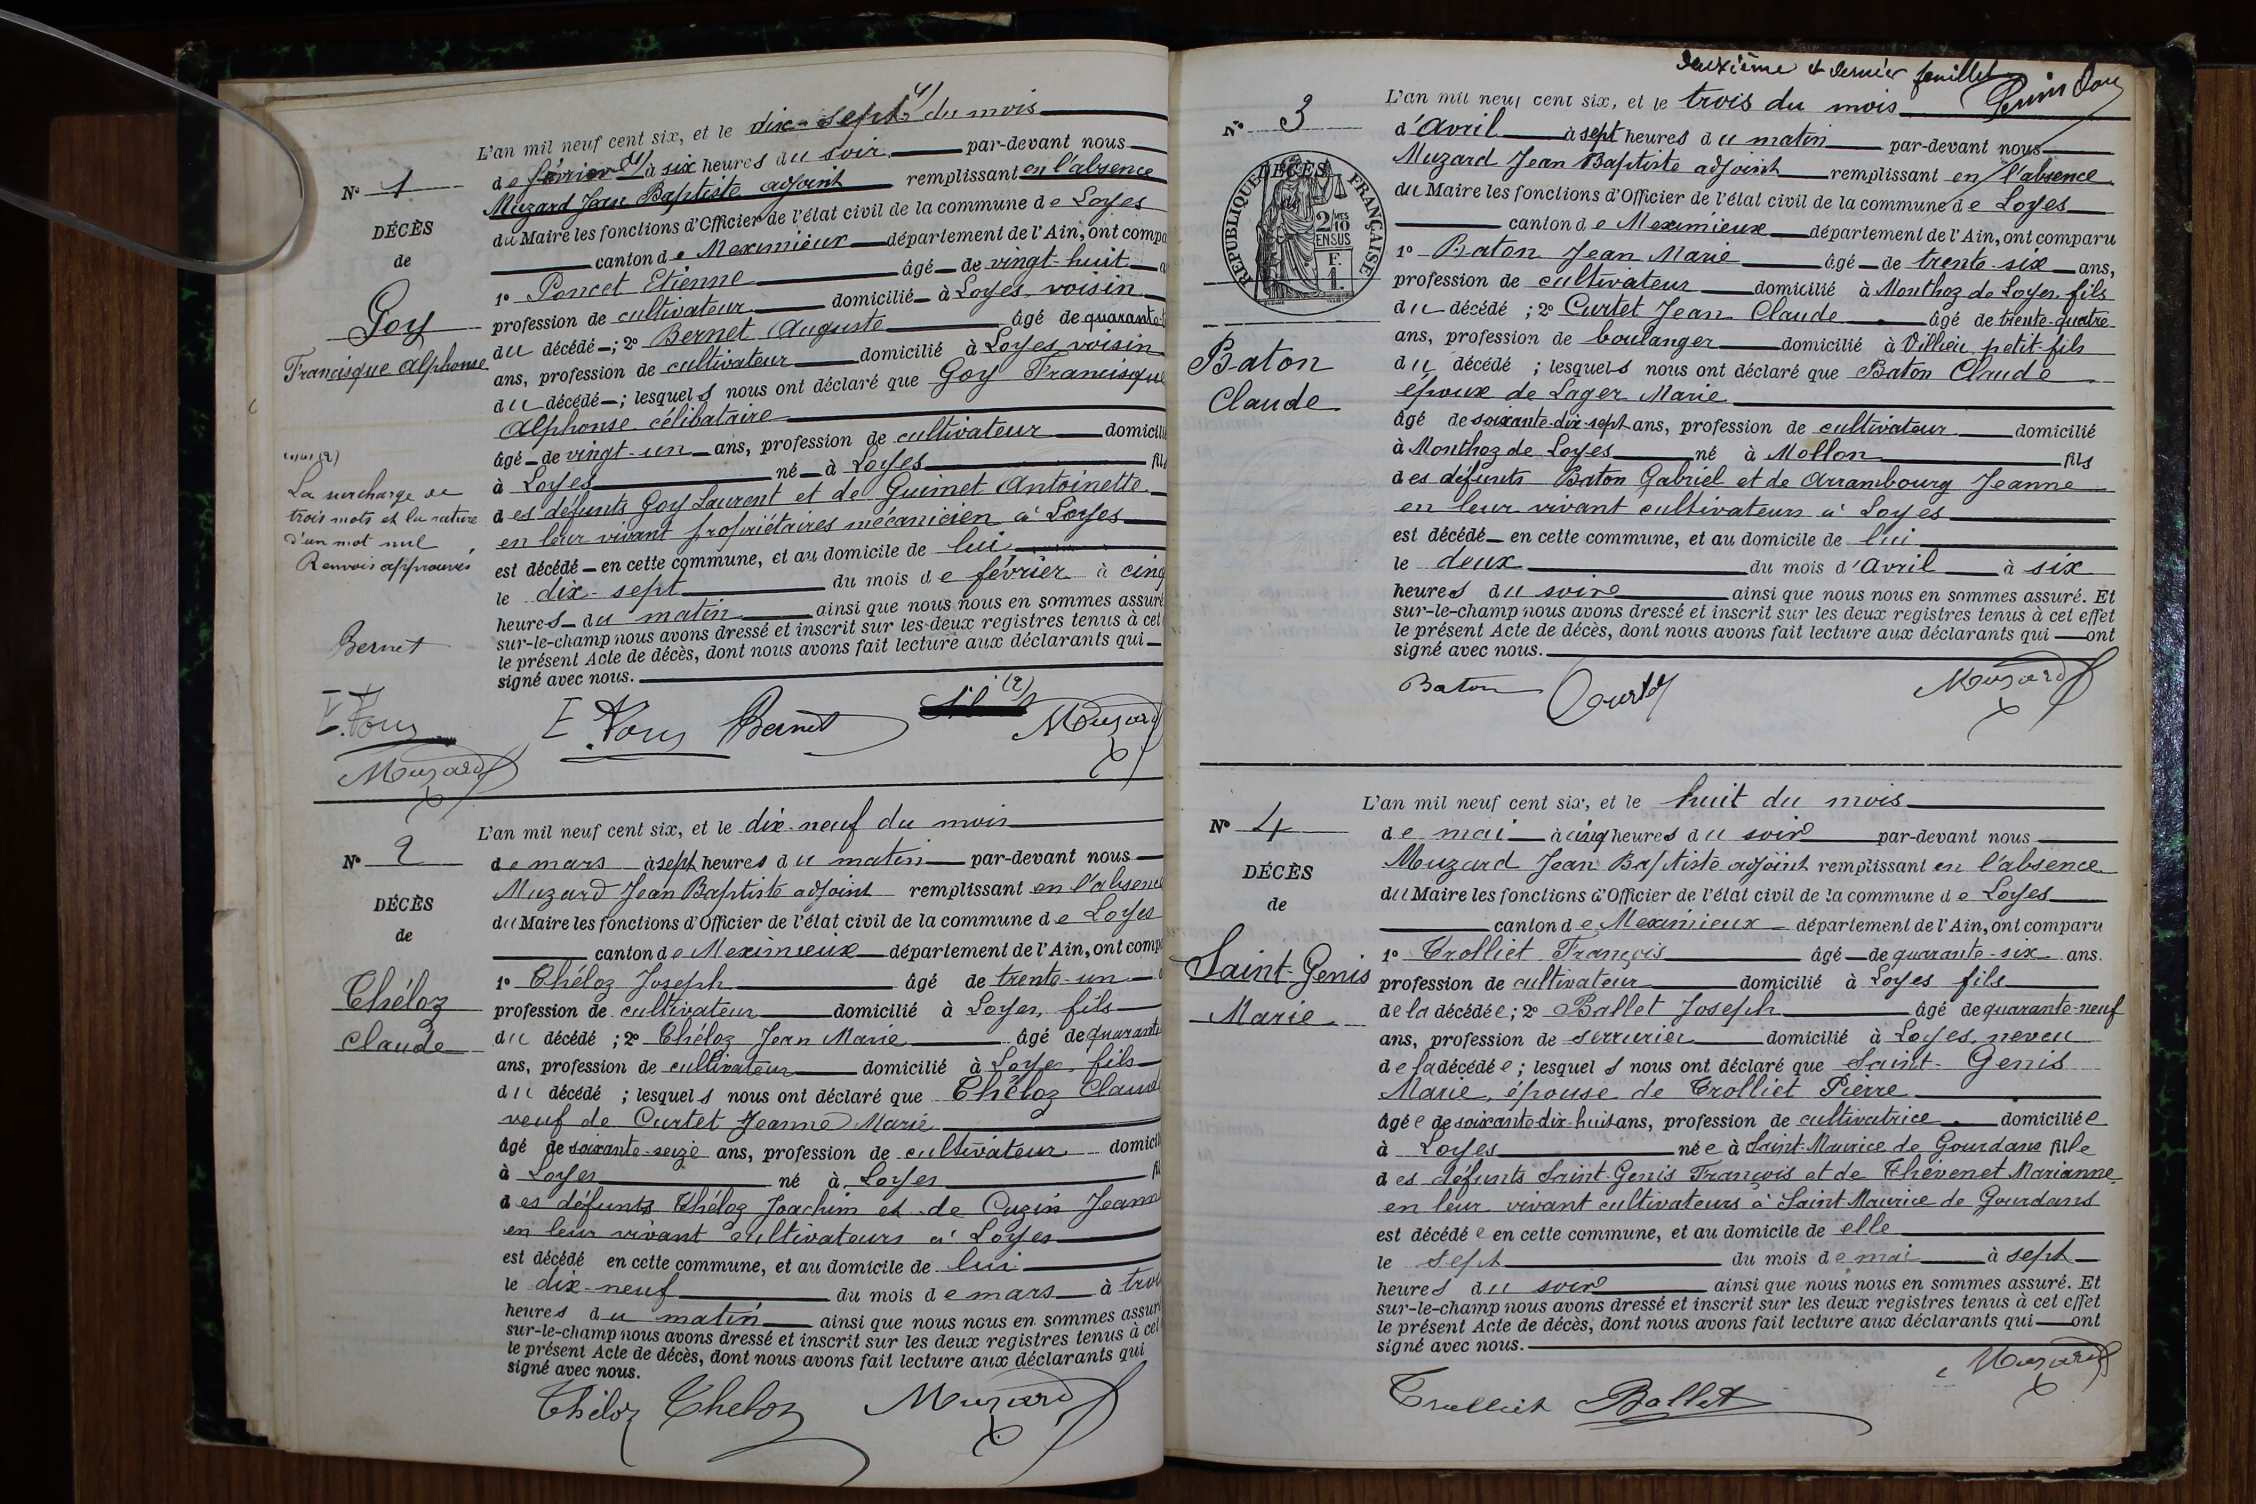 L'an mil neuf cent six, et le dix-sept (1) du mois
de février (1) à six heures du soir par-devant nous
Muzard Jean Baptiste adjoint remplissant en l'absence
du Maire les fonctions d'Officier de l'état civil de la commune de Loyes
canton de Meximieux département de l'Ain, ont compa
1º Poncet Etienne âgé de vingt-huit
profession de cultivateur domicilié à Loyes, voisin
du décédé ; 2º Bernet Auguste âgé de quarante
ans, profession de cultivateur domicilié à Loyes voisin
du décédé ; lesquels nous ont déclaré que Goy Francisque
Alphonse célibataire
âgé de vingt-un ans, profession de cultivateur domicilié
à Loyes né à Loyes fils
des défunts Goy Laurent et de Guimet Antoinette
en leur vivant propriétaires mécanicien à Loyes
est décédé en cette commune, et au domicile de lui
le dix-sept du mois de février à cinq
heures du matin ainsi que nous nous en sommes assuré
sur-le-champ nous avons dressé et inscrit sur les deux registres tenus à cet
le présent Acte de décès, dont nous avons fait lecture aux déclarants qui
signé avec nous.
Nº 1
DÉCÈS
de
Goy
Francisque Alphonse
La surcharge de
trois mots et la rature
d'un mot nul
Renvois approuvés
Bernet
Muzard
Bernet (2) Muzard
L'an mil neuf cent six, et le dix-neuf du mois
de mars à sept heures du matin par-devant nous
Muzard Jean Baptiste adjoint remplissant en l'absence
du Maire les fonctions d'Officier de l'état civil de la commune de Loyes
canton de Meximieux département de l'Ain, ont compa
1º Théloz Joseph âgé de trente-un
profession de cultivateur domicilié à Loyes, fils
du décédé ; 2º Théloz Jean Marie âgé de quarante
ans, profession de cultivateur domicilié à Loyes, fils
du décédé ; lesquels nous ont déclaré que Théloz Claude
veuf de Curtet Jeanne Marie
âgé de soixante-seize ans, profession de cultivateur domicilié
à Loyes né à Loyes
des défunts Théloz Joachim et de Cuzin Jeanne
en leur vivant cultivateurs à Loyes
est décédé en cette commune, et au domicile de lui
le dix-neuf du mois de mars à trois
heures du matin ainsi que nous nous en sommes assuré
sur-le-champ nous avons dressé et inscrit sur les deux registres tenus à cet
le présent Acte de décès, dont nous avons fait lecture aux déclarants qui
signé avec nous.
Nº 2
DÉCÈS
de
Théloz
Claude
Théloz Theloz Muzard
deuxième et dernier feuillet
L'an mil neuf cent six, et le trois du mois
d'Avril à sept heures du matin par-devant nous
Muzard Jean Baptiste adjoint remplissant en l'absence
du Maire les fonctions d'Officier de l'état civil de la commune de Loyes
canton de Meximieux département de l'Ain, ont comparu
1º Baton Jean Marie âgé de trente-six ans,
profession de cultivateur domicilié à Monthoz de Loyes, fils
du décédé ; 2º Curtet Jean Claude âgé de trente-quatre
ans, profession de boulanger domicilié à Villieu petit-fils
du décédé ; lesquels nous ont déclaré que Baton Claude
époux de Lager Marie
âgé de soixante-dix-sept ans, profession de cultivateur domicilié
à Monthoz de Loyes né à Mollon fils
des défunts Baton Gabriel et de Arrambourg Jeanne
en leur vivant cultivateurs à Loyes
est décédé en cette commune, et au domicile de lui
le deux du mois d'Avril à six
heures du soir ainsi que nous nous en sommes assuré. Et
sur-le-champ nous avons dressé et inscrit sur les deux registres tenus à cet effet
le présent Acte de décès, dont nous avons fait lecture aux déclarants qui ont
signé avec nous.
Nº 3
DÉCÈS
RÉPUBLIQUE FRANÇAISE
2/10 MES
EN SUS
F.
1.
Baton
Claude
Baton Curtet Muzard
L'an mil neuf cent six, et le huit du mois
de mai à cinq heures du soir par-devant nous
Muzard Jean Baptiste adjoint remplissant en l'absence
du Maire les fonctions d'Officier de l'état civil de la commune de Loyes
canton de Meximieux département de l'Ain, ont comparu
1º Trolliet François âgé de quarante-six ans.
profession de cultivateur domicilié à Loyes fils
de la décédée ; 2º Ballet Joseph âgé de quarante-neuf
ans, profession de serrurier domicilié à Loyes, neveu
de la décédée ; lesquels nous ont déclaré que Saint-Genis
Marie, épouse de Trolliet Pierre
âgée de soixante-dix-huit ans, profession de cultivatrice domiciliée
à Loyes née à Saint-Maurice de Gourdans fille
des défunts Saint-Genis François et de Thévenet Marianne
en leur vivant cultivateurs à Saint-Maurice de Gourdans
est décédée en cette commune, et au domicile de elle
le sept du mois de mai à sept
heures du soir ainsi que nous nous en sommes assuré. Et
sur-le-champ nous avons dressé et inscrit sur les deux registres tenus à cet effet
le présent Acte de décès, dont nous avons fait lecture aux déclarants qui ont
signé avec nous.
Nº 4
DÉCÈS
de
Saint-Genis
Marie
Muzard
Trolliet Ballet